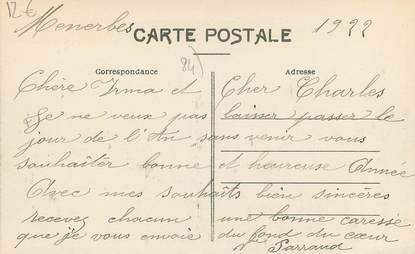 12 €
Menerbes 1922
CARTE POSTALE
84)
Correspondance Adresse
Chère Irma et Cher Charles
Je ne veux pas laisser passer le
jour de l'An sans venir vous
souhaiter bonne et heureuse Année
Avec mes souhaits bien sincères
recevez chacun une bonne caresse
que je vous envoie du fond du cœur
Parraud